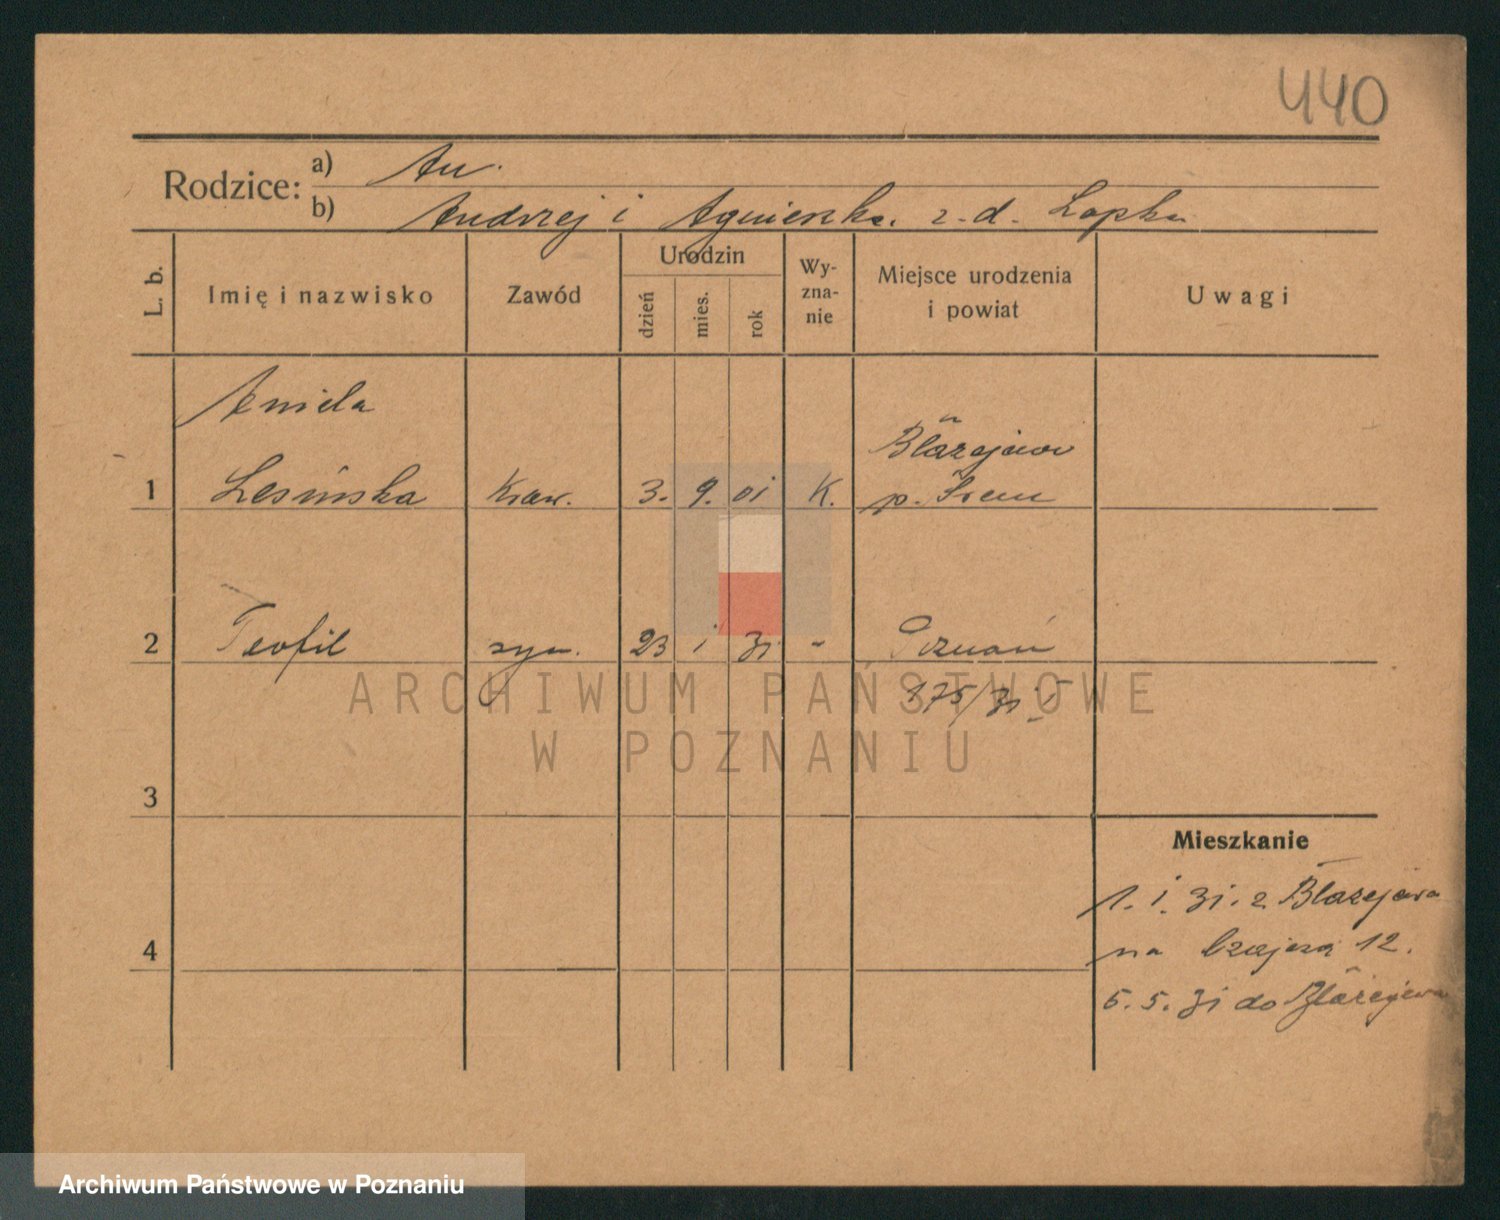 440
Rodzice: a) An.
b) Andrzej i Agnieszka z-d. Lapka
L. b. Imię i nazwisko Zawód Urodzin dzień mies. rok Wy-zna-nie Miejsce urodzenia i powiat Uwagi
Aniela
Błażejewo
1 Lesińska Kraw. 3. 9. 01 K. p. Śrem
2 Teofil syn. 23 1 31 - Poznań
175/31 I
ARCHIWUM PAŃSTWOWE
W POZNANIU
3
Mieszkanie
1. i. 31. z Błażejewa
4 na 12.
5. 5. 31 do Błażejewa
Archiwum Państwowe w Poznaniu